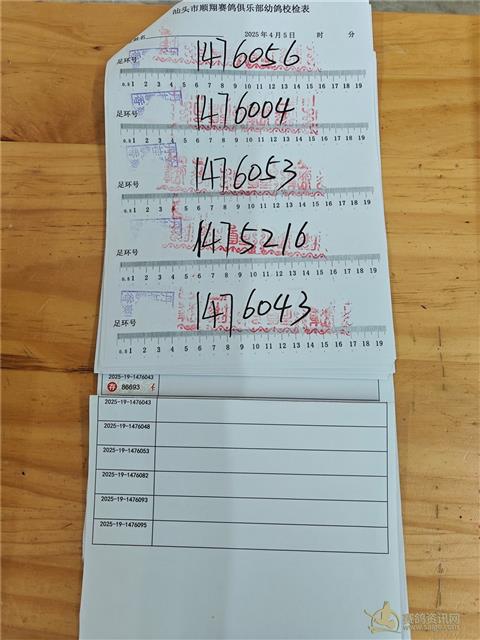 汕头市顺翔赛鸽俱乐部幼鸽校检表
姓名 2025年4月5日 时 分
足环号 1476056
0.5 1 2 3 4 5 6 7 8 9 10 11 12 13 14 15 16 17 18 19
足环号 1476004
0.5 1 2 3 4 5 6 7 8 9 10 11 12 13 14 15 16 17 18 19
足环号 1476053
0.5 1 2 3 4 5 6 7 8 9 10 11 12 13 14 15 16 17 18 19
足环号 1475216
0.5 1 2 3 4 5 6 7 8 9 10 11 12 13 14 15 16 17 18 19
足环号 1476043
0.5 1 2 3 4 5 6 7 8 9 10 11 12 13 14 15 16 17 18 19
2025-19-1476043
符 86693
2025-19-1476043
2025-19-1476048
2025-19-1476053
2025-19-1476082
2025-19-1476093
2025-19-1476095
赛鸽资讯网
www.saige.com